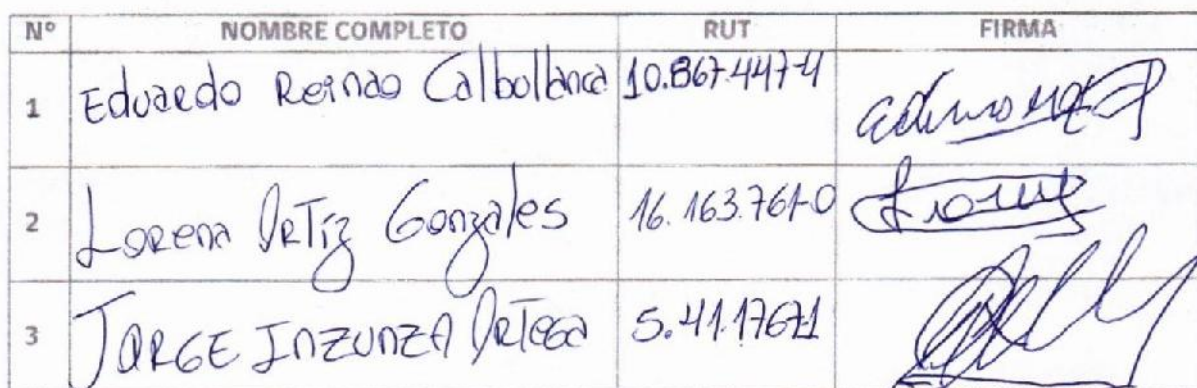 Nº NOMBRE COMPLETO RUT FIRMA
1 Eduardo Reinao Calbullanca 10.867.447-4
2 Lorena Ortiz Gonzales 16.163.761-0
3 JORGE INZUNZA ORTEGA